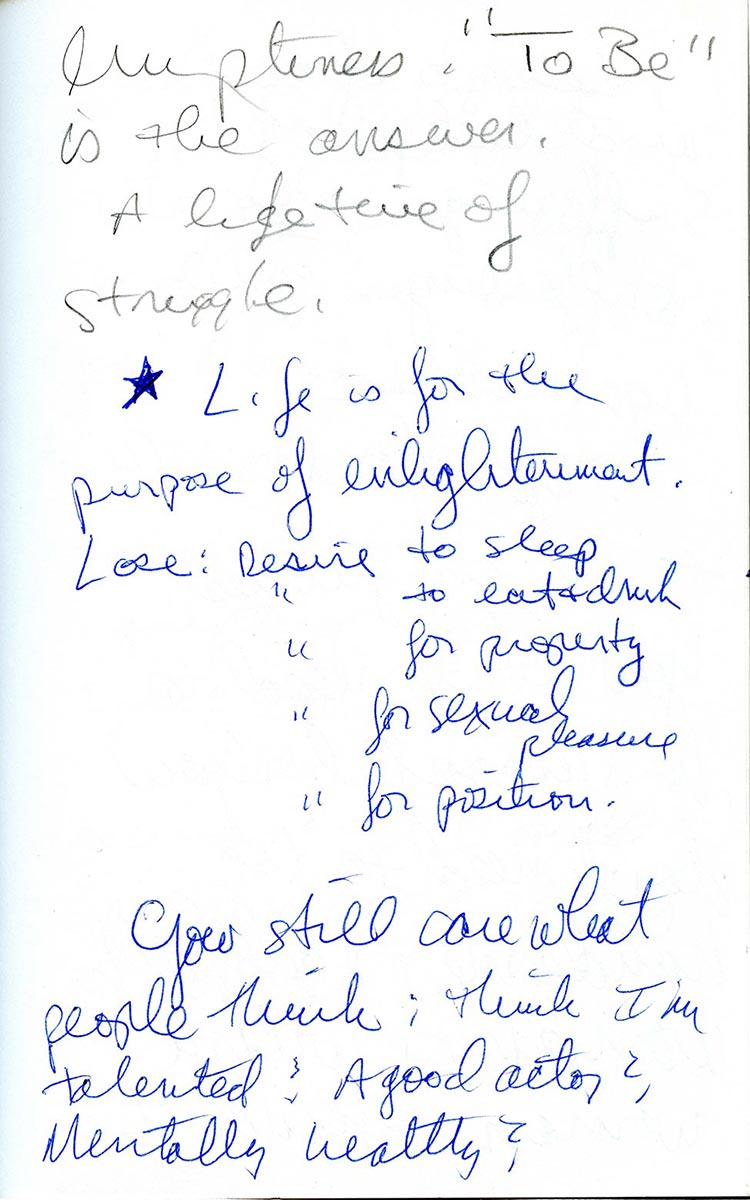 Emptiness. "To Be"
is the answer.
A lifetime of
struggle.
★ Life is for the
purpose of enlightenment.
Lose: Desire to sleep
" to eat & drink
" for property
" for sexual
pleasure
" for position.
You still care what
people think; think I'm
talented? A good actor?,
Mentally healthy?